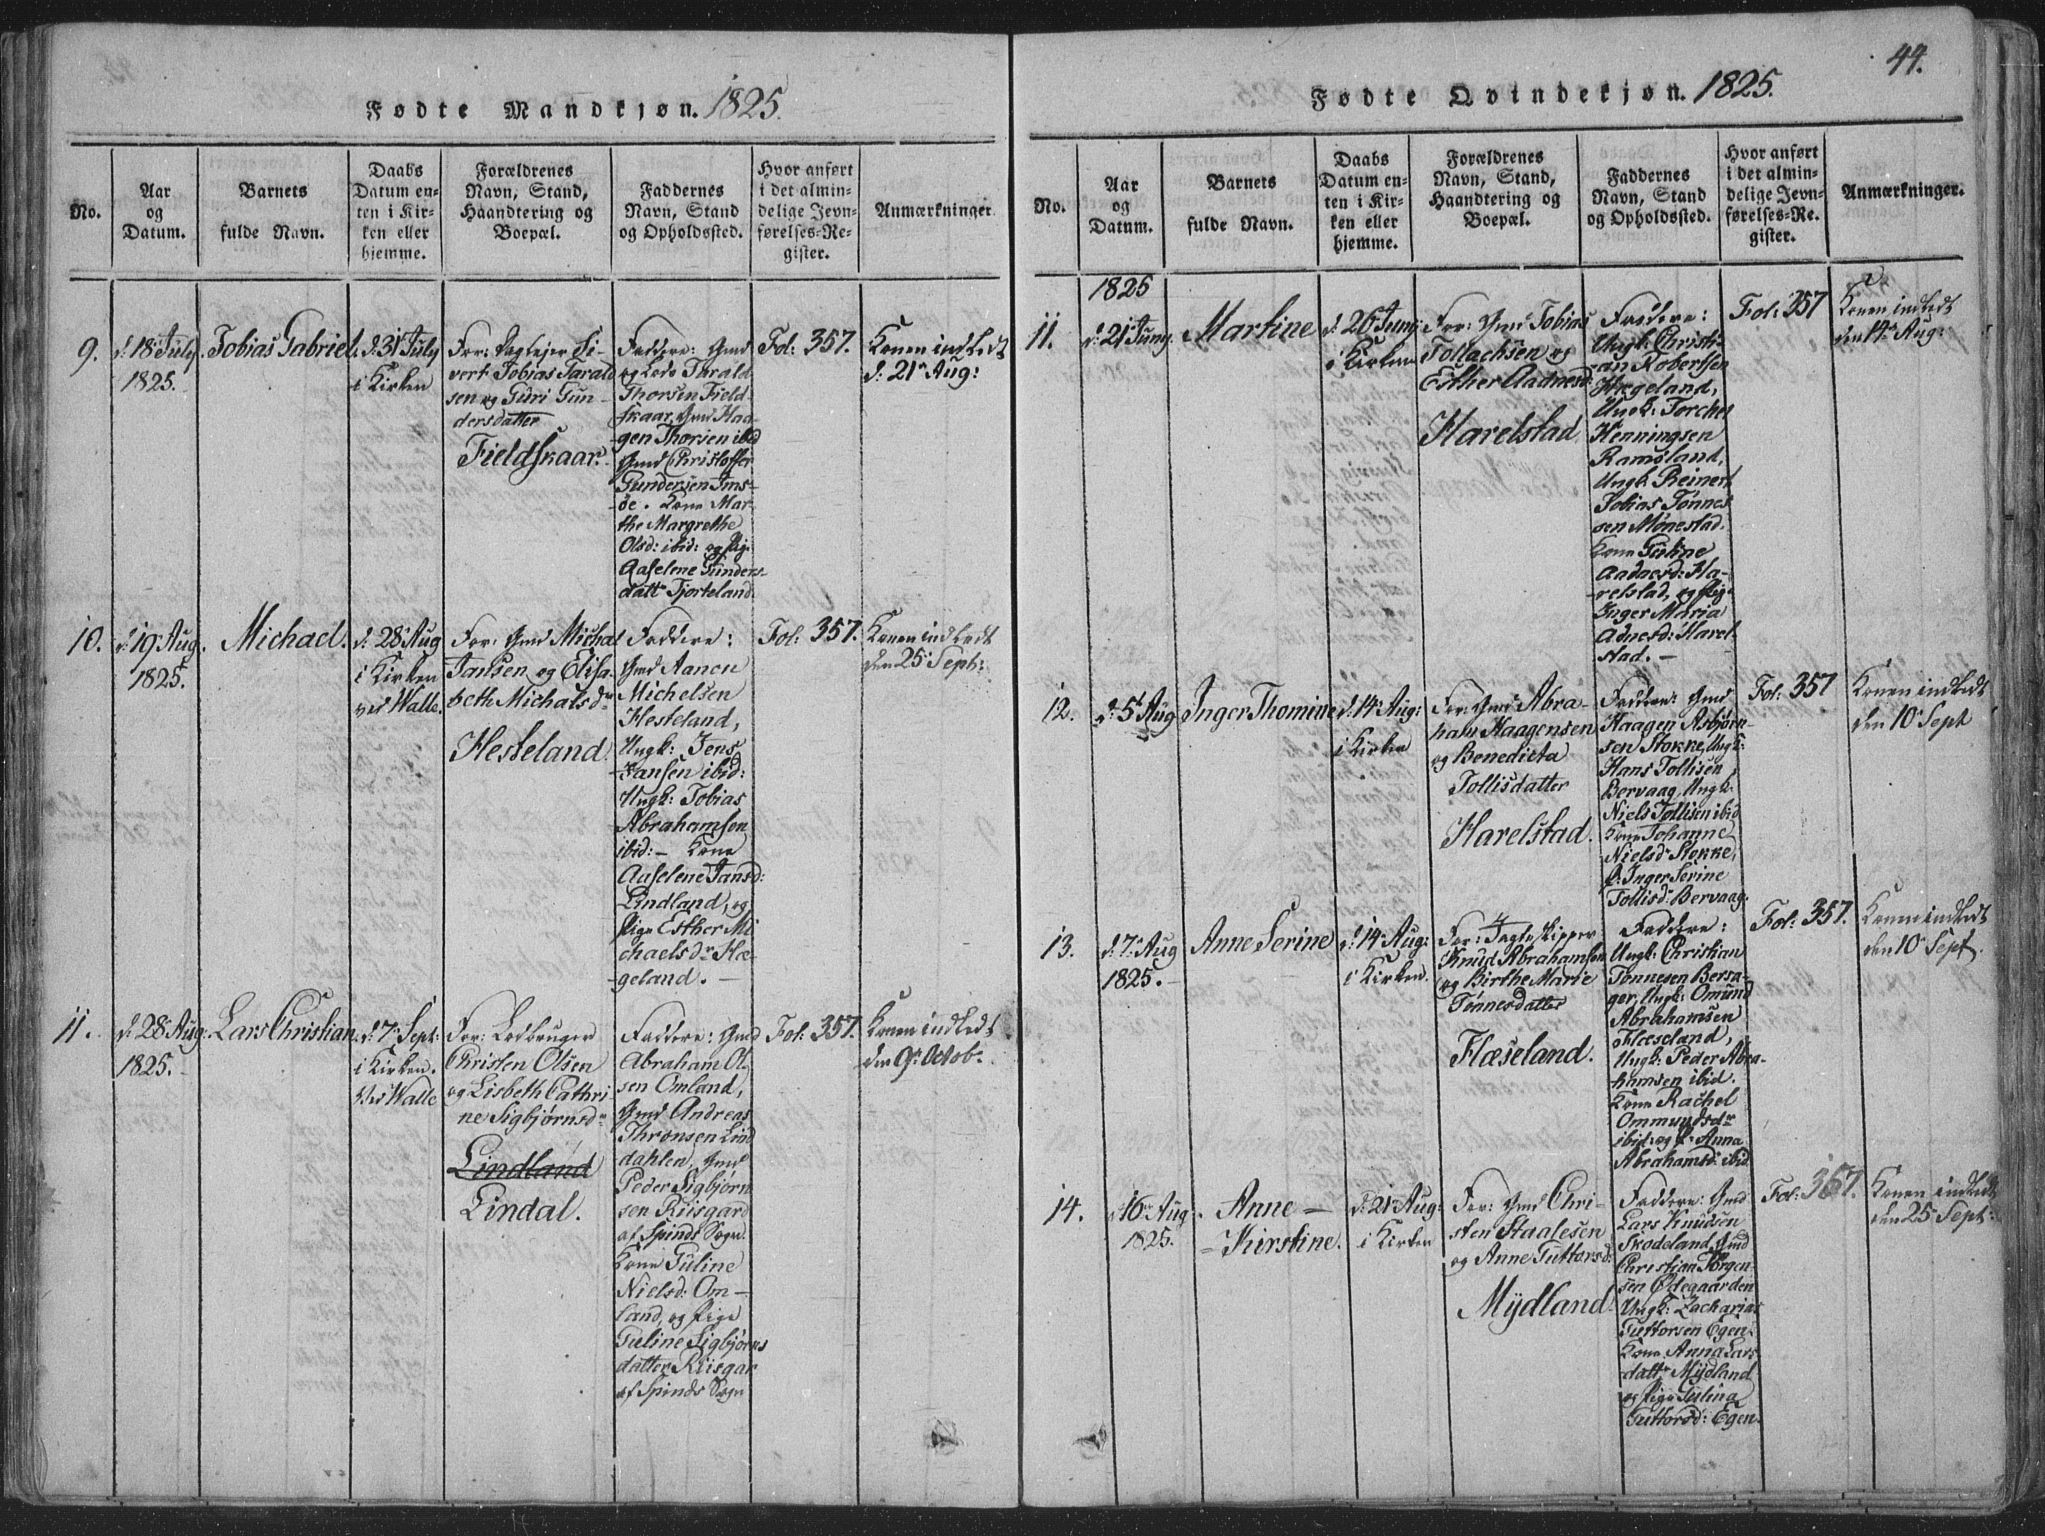 Fødte Mandkjøn. 1825.
No.
Aar
og
Datum.
Barnets
fulde Navn.
Daabs
Datum en-
ten i Kir-
ken eller
hjemme.
Forældrenes
Navn, Stand,
Haandtering og
Boepæl.
Faddernes
Navn, Stand
og Opholdssted.
Hvor anført
i det almin-
delige Jevn-
førelses-Re-
gister.
Anmærkninger
9.
d. 18 July
1825.
Tobias Gabriel.
d. 31 July
i Kirken
For: Si-
vert Tobias Tarald
sen og Guri Gun-
dersdatter
Fieldskaar.
Faddere: Gmd
Tarald
Thorsen Field-
skaar, Gmd Haa-
gen Thorsen ibid
Gmd Christoffer
Gundersen Ims-
øe. Kone Mar-
the Margrethe
Olsd: ibid: og Pig.
Aaselene Gunders-
datt. Tjorteland.
Fol: 357.
Konen indledt
d: 21 Aug:
10.
d. 19 Aug.
1825.
Michael.
d. 28 Aug
i Kirken
ved Walle.
For: Gmd Michal
Jansen og Elisa-
beth Michalsd.
Hesteland.
Faddere:
Gmd Aanen
Michelsen
Hesteland,
Ungk: Jens
Jansen ibid:
Ungk: Tobias
Abrahamsen
ibid:- Kone
Aaselene Jansd:
Lindland, og
Pige Esther Mi
chaelsd. Hæ-
geland. -
Fol: 357.
Konen indledt
den 25 Sept:
11.
d. 28 Aug.
1825.
Lars Christian.
d. 7 Sept:
i Kirken.
ved Walle
For: Ledbruger
Christen Olsen
og Lisbeth Cathri
ne Sigbjørnsd.
Lindland
Lindal.
Faddere: Gmd
Abraham Ol
sen Omland,
Gmd Andreas
Thronsen Lin
dahlen, Gmd
Peder Sigbjørn
sen Riisgard
af Spinds Sogn.
Kone Guline
Nielsd: Om-
land, og Pige
Guline Sigbjørns
datter Riisgar
af Spinds Sogn
Fol: 357.
Konen indledt
den 9. Octob.
Fødte Qvindekjøn. 1825.
44.
No.
Aar
og
Datum.
Barnets
fulde Navn.
Daabs
Datum en-
ten i Kir-
ken eller
hjemme.
Forældrenes
Navn, Stand,
Haandtering og
Boepæl.
Faddernes
Navn, Stand
og Opholdssted.
Hvor anført
i det almin-
delige Jevn-
førelses-Re-
gister.
Anmærkninger.
11.
1825
d. 21 Juny.
Martine
d. 26 Juny
i Kirken
For: Gmd Tobias
Tollachsen og
Esther Aadnesd:
Harelstad
Faddere:
Ungk: Christi-
an Robertsen
Hægeland,
Ungk: Torchel
Henningsen
Ramsland,
Ungk. Reinert
Tobias Tønnes
sen Mønestad.
Kone
Aadnesd: Ha-
relstad, og Pig.
Inger Maria
Adnesd: Harel
stad. -
Fol: 357
Konen indledt
den 14 Aug:
12.
d. 5 Aug
Inger Thomine
d. 14 Aug:
i Kirken
For: Gmd Abra-
ham Haagensen
og Benedicta
Tollisdatter
Harelstad.
Faddere: Gmd
Haagen Asbjørn-
sen Stokke, Ungk:
Hans Tollisen
Bervaag, Ungk:
Niels Tollisen ibid
Kone Johanne
Nielsd. Stokke,
P: Inger Serine
Tollisd: Bervaag.
Fol: 357
Konen indledt
den 10 Sept
13.
d. 7. Aug
1825.
Anne Serine
d. 14 Aug:
i Kirken.
For: Jagteskipper
Knud Abrahamsen
og Birthe Marie
Tønnesdatter
Flæseland.
Faddere:
Ungk: Christian
Tonnesen Bersa-
ger, Ungk: Omund
Abrahamsen
Flæseland,
Ungk: Peder Abra-
hamsen ibid.
Kone Rachel
Ommundsd.
ibid: og P. Anna
Abrahamsd: ibid
Fol: 357.
Konen indledt
den 10 Sept.
14.
d. 16 Aug.
1825.
Anne -
- Kirstine.
d. 21 Aug:
i Kirken
For: Gmd Chri-
sten Staalesen
og Anne Guttorsd.
Mydland.
Faddere: Gmd
Lars Knudsen
Skodeland, Gmd
Christian Jørgen-
sen Ødegaarden
Ungk: Zacharias
Guttorsen Egen.
Kone: Anna Lars
datt. Mydland
og Pige Gulina
Guttorsd: Egen.
Fol: 357.
Konen indledt
den 25 Sept: